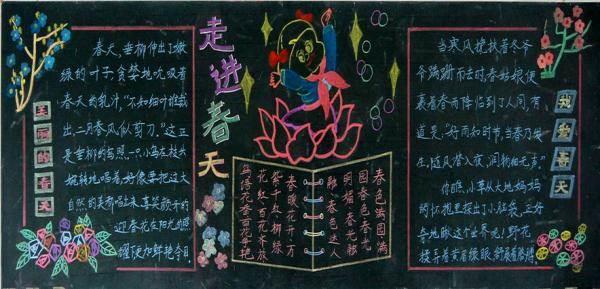 美丽的春天
春天，垂柳伸出了嫩
绿的叶子，贪婪地吮吸着
春天的乳汁，“不知细叶谁裁
出，二月春风似剪刀。”这正
是垂柳的写照。一只小鸟在枝头
婉转地唱着，好像要把这大
自然的美都唱出来，喜笑颜开的
迎春花在阳光的照
耀下更加鲜艳夺目。
走进春天
春色满园满
园春色春光
明媚春光融
融春色迷人
春暖花开万
紫千红柳绿
花红百花齐放
鸟语花香百花争艳
当寒风搀扶着冬爷
爷蹒跚而去时，春姑娘便
裹着春雨降临到了人间，有
道是：“好雨知时节，当春乃发
生，随风潜入夜，润物细无声”
你瞧，小草从大地妈妈
的怀抱里探出了小脑袋，正好
奇地眺这个世界呢！野花
我爱春天